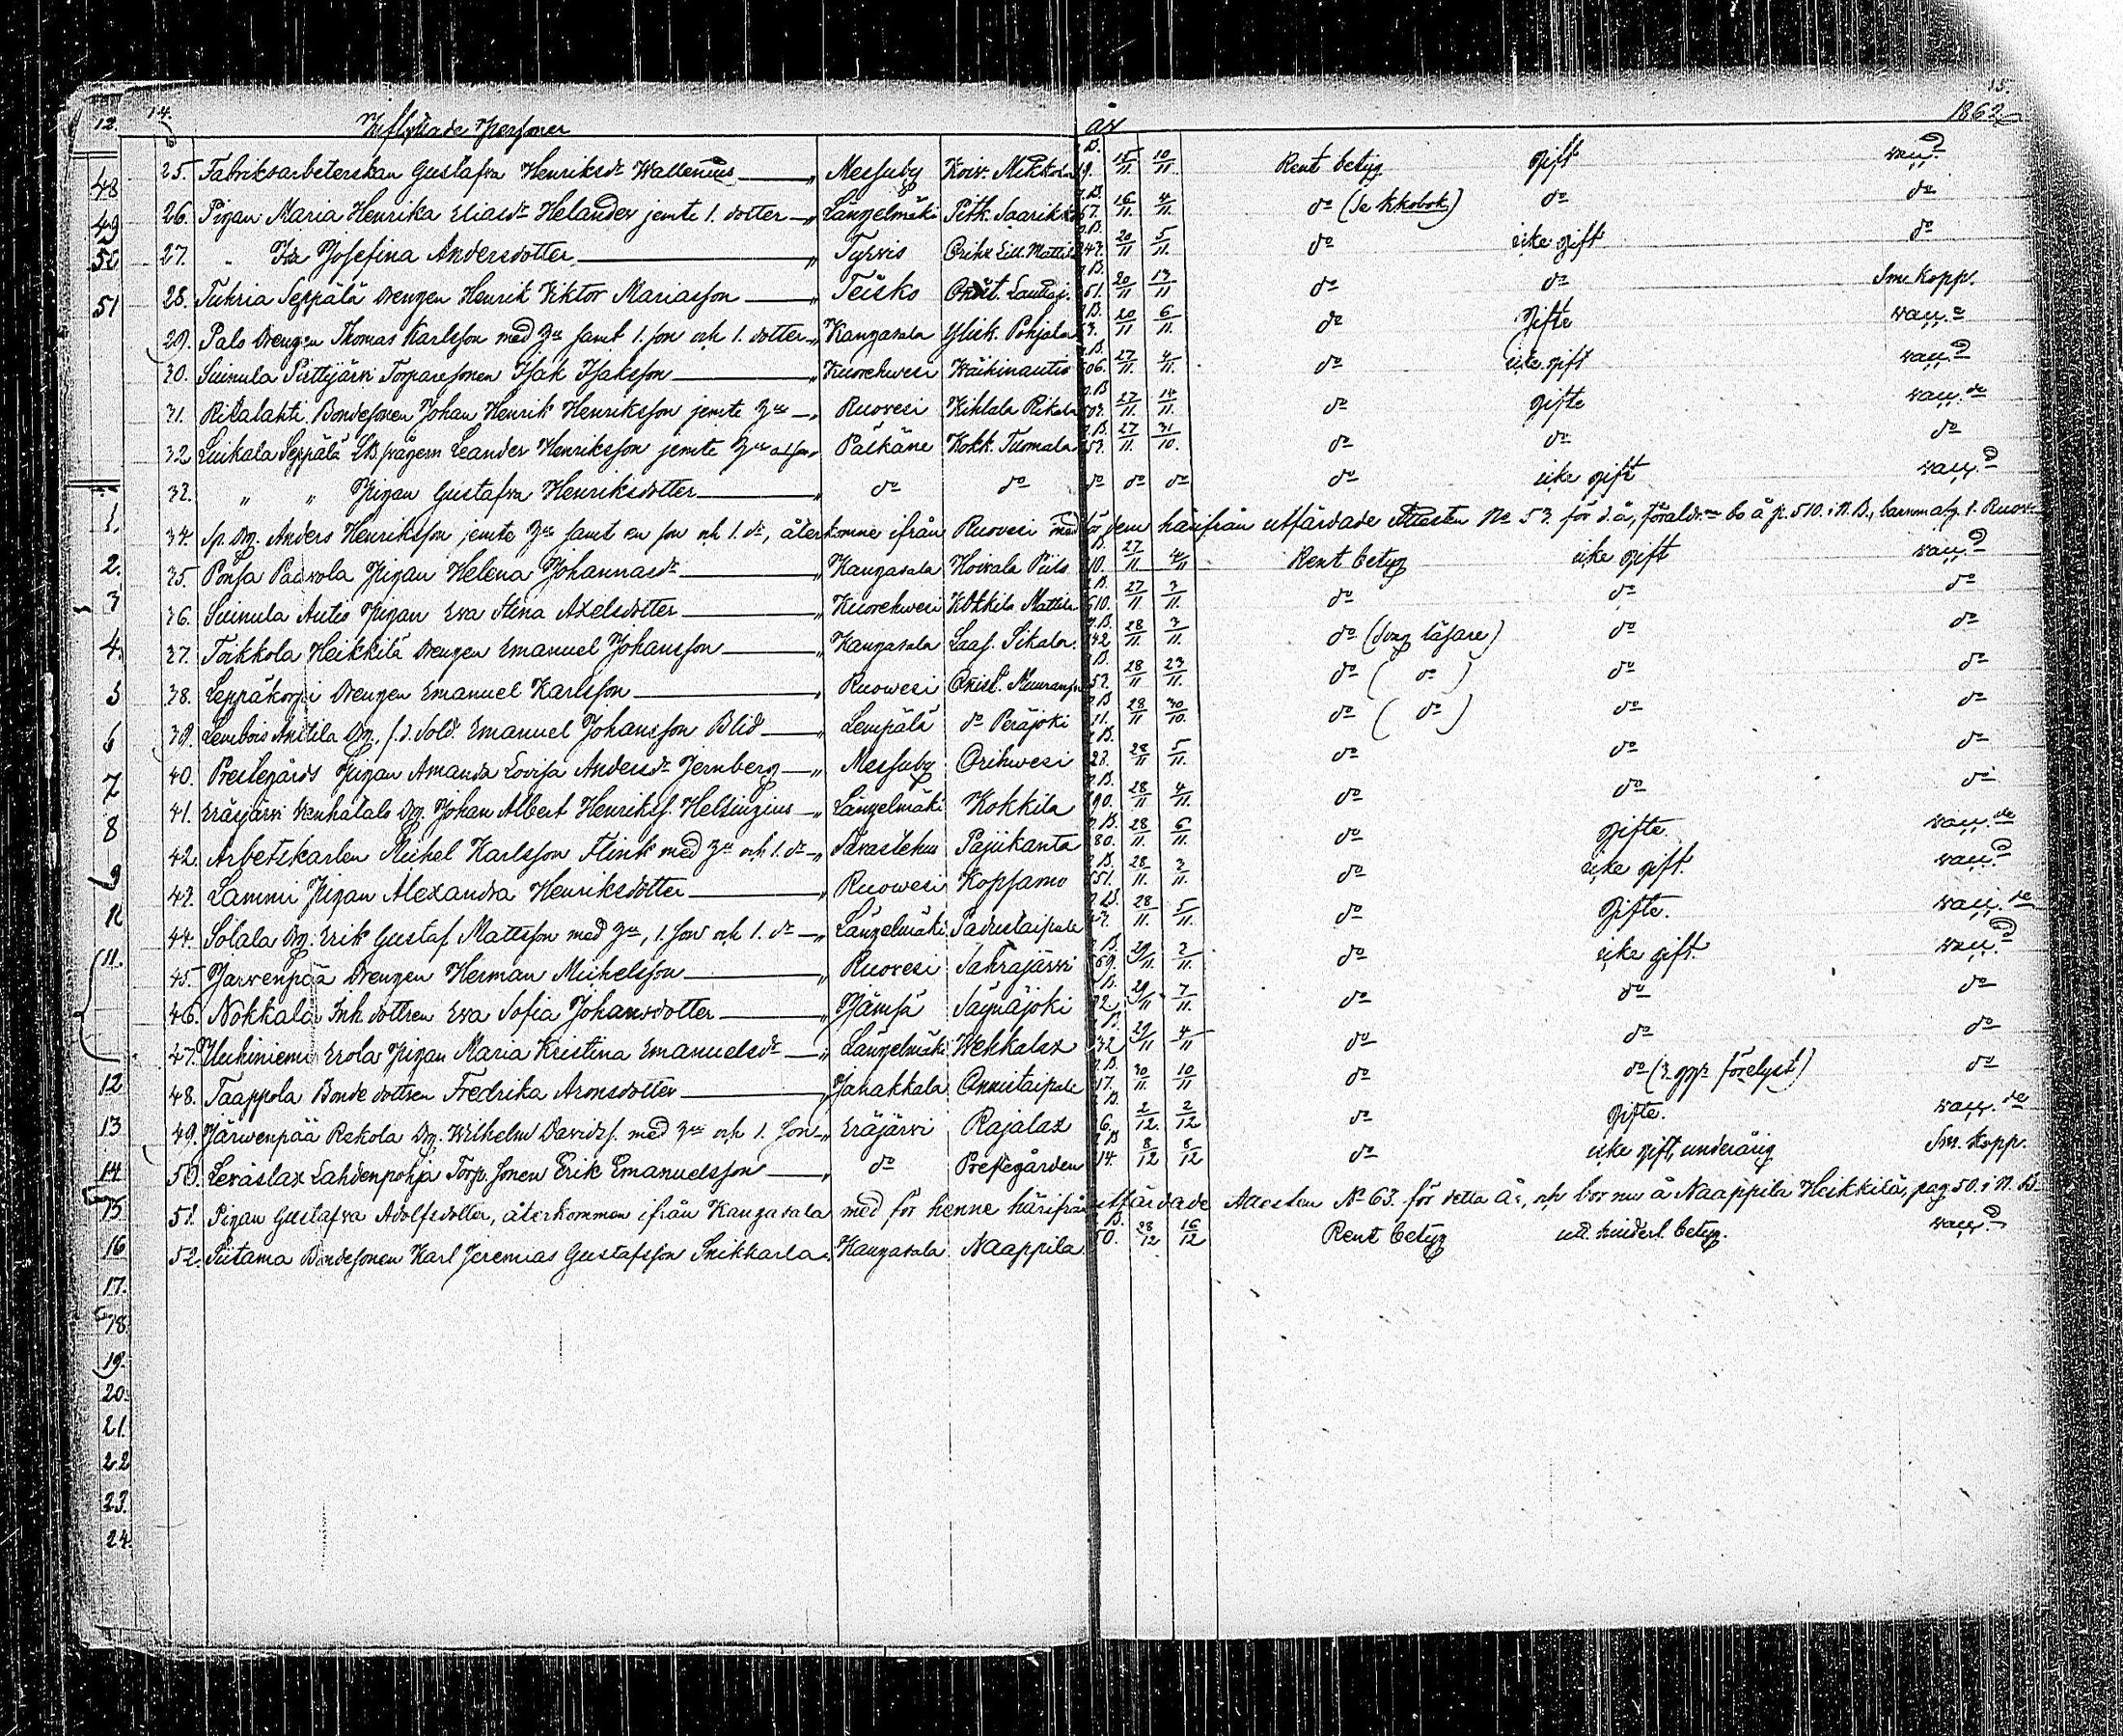 12. 14. Inflyttade Personer år 1862 15.
25. Fabriksarbeterskan Gustafva Henriksdr Wallenius " Messuby Koiv. Mikkola 19. 15/11. 10/11. Rent betyg gift vacc.
26. Pigan Maria Henrika Eliasdr Helander jemte 1. dotter " Längelmäki Pitk. Saarik 57. 16/11. 4/11. do (se kkobok) do do
27. " Ida Josefina Andersdotter " Tyrvis Orihv. Lill. Mattil 247. 20/11 5/11. do icke gift do
28. Tuhria Seppälä Drengen Henrik Viktor Mariasson " Teisko 51. 20/11 13/11 do do Sm. kopp.
29. Palo Drengen Thomas Karlsson med hu samt 1. son och 1. dotter " Kangasala Ylik. Pohjala 3. 20/11 6/11. do Gifte vacc.
30. Suinula Pirttijärvi Torparesonen Isak Isaksson " Kuorehwesi Wäihinautio 506. 27/11. 4/11. do icke gift vacc.
31. Ritalahti Bondesonen Johan Henrik Henriksson jemte hu " Ruovesi Kihlala Rikala 503. 27/11. 14/11. do gifte vacc. de
32. Liukala Seppälä Leander Henriksson jemte hu Pälkäne Kokk. Tuomala 53. 27/11. 31/10. do do do
33. " " Pigan Gustafva Henriksdotter " do do do do do do icke gift vacc.
34. Sp. Dr. Anders Henriksson jemte hu samt en son och 1. dr, återkomne ifrån Ruovesi med för dem härifrån utfärdade Attesten No 53. för d. å, föräldr. bo å p. 510. i N. B., barnen 1. Ruov.
35. Ponsa Paavola Pigan Helena Johannasdr " Kangasala Hoivala Piils 210. 27/11 4/11 Rent betyg icke gift vacc.
36. Suinula Autio Pigan Eva Stina Axelsdotter " Kuorehwesi Kokkila Mattila 510. 27/11 3/11. do do do
37. Toikkola Heikkilä Drengen Emanuel Johansson " Kangasala Laas. Sikala 142. 28/11 3/11. do (svag läsare) do do
38. Leppäkorpi Drengen Emanuel Karlsson " Ruowesi 52. 28/11 23/11. do ( do ) do do
39. Lembois Anttila Dr. f. d. Sold. Emanuel Johansson Blid " Lempälä do Peräjoki 11. 28/11 30/10. do ( do ) do do
40. Prestegårds Pigan Amanda Lovisa Andersdr Jernberg " Messuby Orihwesi 28. 28/11 5/11. do do do
41. Eräsjärvi Wenhätalo Dr. Johan Albert Henrikss. Helsingius " Längelmäki Kokkila 90. 28/11 4/11. do do do
42. Arbetskarlen Michel Karlsson Flink med hu och 1. dr " Tavastehus Pajukanta 80. 28/11. 6/11. do gifte vacc. de
43. Lammi Pigan Alexandra Henriksdotter " Ruowesi Kopsamo 551. 28/11. 3/11. do icke gift. vacc.
44. Solala Dr. Erik Gustaf Mattsson med hu, 1. son och 1. dr " Längelmäki Padustaipale 43. 28/11. 5/11. do Gifte. vacc. de
45. Jarvenpää Drengen Herman Michelsson " Ruovesi Sahrajärvi 569. 29/11. 2/11. do icke gift. vacc.
46. Nokkala Inh. dottren Eva Sofia Johansdotter " Jämsä Säynäjoki 72. 29/11. 7/11. do do do
47. Uuhiniemi Erola Pigan Maria Kristina Emanuelsdr " Längelmäki Wehkalax 32. 29/11 4/11 do do do
48. Taappola Bonde dottren Fredrika Aronsdotter " Janakkala Onnistaipale 17. 30/11. 10/11 do do (3. ggr förelyst) do
49. Järwenpää Rekola Dr. Wilhelm Davidss. med hu och 1. son " Eräjärvi Rajalax 6. 2/12. 2/12 do gifte. vacc. de
50. Leväslax Lahdenpohja Torp. sonen Erik Emanuelsson " do Prestegården 14. 8/12 8/12 do icke gift, underårig Sm. kopp.
51. Pigan Gustafva Adolfsdotter, återkommen ifrån Kangasala med för henne härifrån utfärdade Attesten No 63. för detta År, och bor nu å Naappila Heikkilä, pag 50. i N. B.
52. Siitama Bondesonen Karl Jeremias Gustafsson Snikkarla " Kangasala Naappila 50. 28/12 16/12 Rent betyg utd. hinderl. betyg. vacc.
48
49
50
51
1.
2.
3
4.
5
6
7
8
9
11.
12
13
14
15
16
17.
18.
19.
20.
21.
22
23.
24.